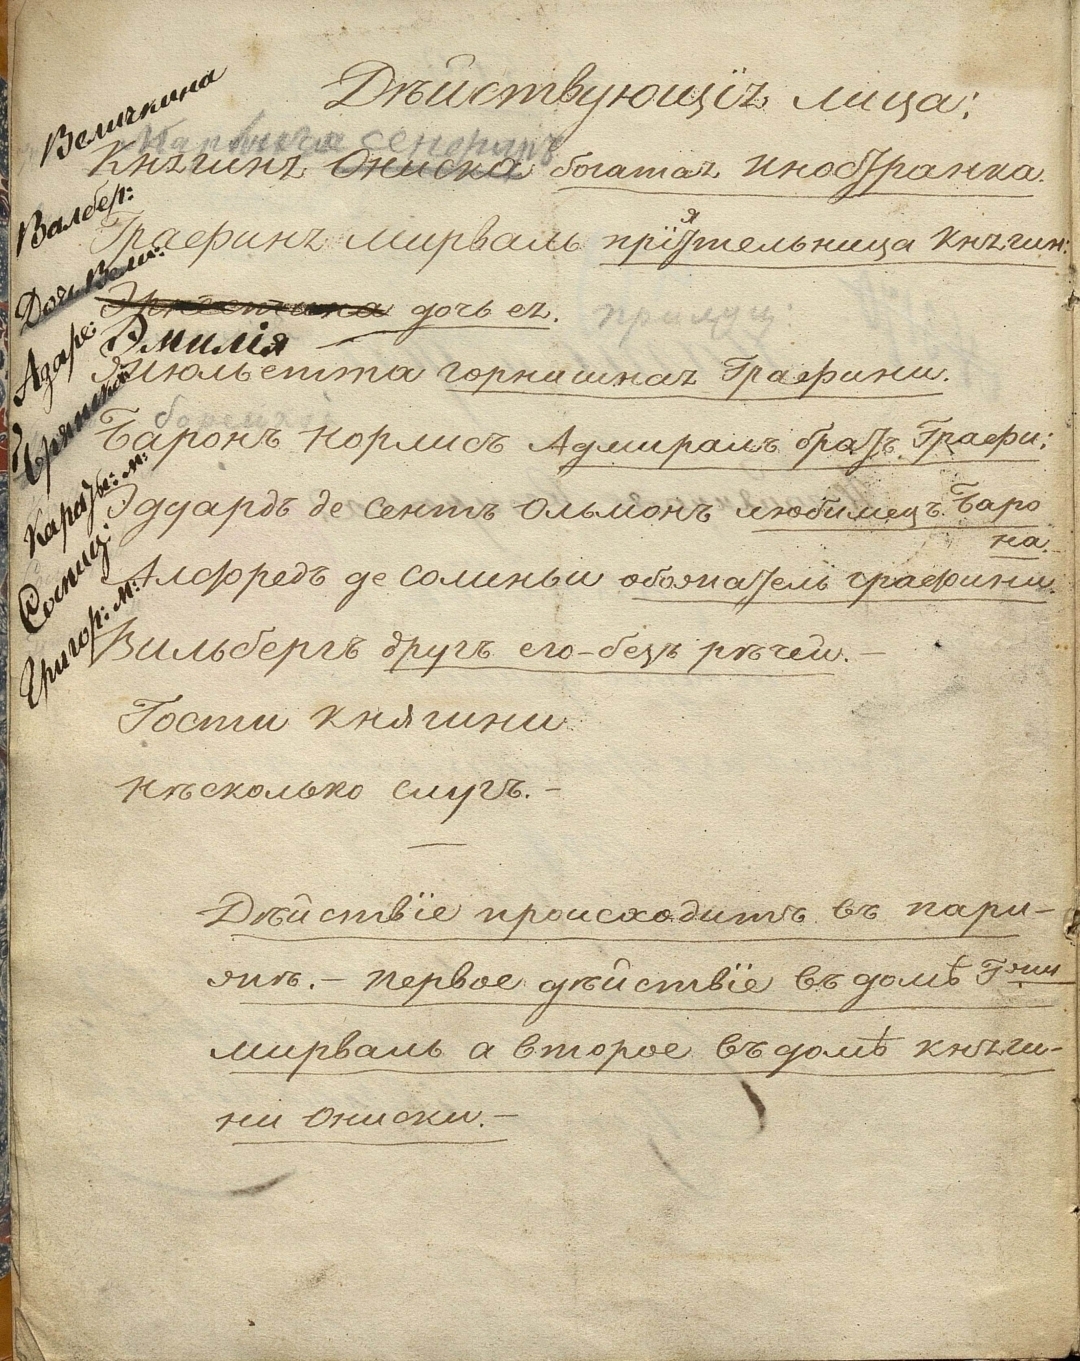 Дѣйствующія лица:
Величкина
Княгиня Ониска богатая иностранка.
Валбер:
Графиня Мирваль пріятельница Княгин:
Дочь Вели:
Эрнестина дочь ея.
Азаре:
Эмилія
Жюльетта горнишная Графини.
Баронъ Норлисъ Адмиралъ братъ Графи:
Эдуардъ де Сентъ Ольмонъ любимецъ Баро
на.
Алфредъ де Солиньи обожатель графини.
Вильбергъ другъ его-безъ рѣчей.-
Григор: м:
Гости Княгини
Нѣсколько слугъ.-
Дѣйствіе происходитъ въ Пари-
жѣ.- Первое дѣйствіе въ домѣ Г
Мирваль а второе въ домѣ Княги-
ни Ониски.-